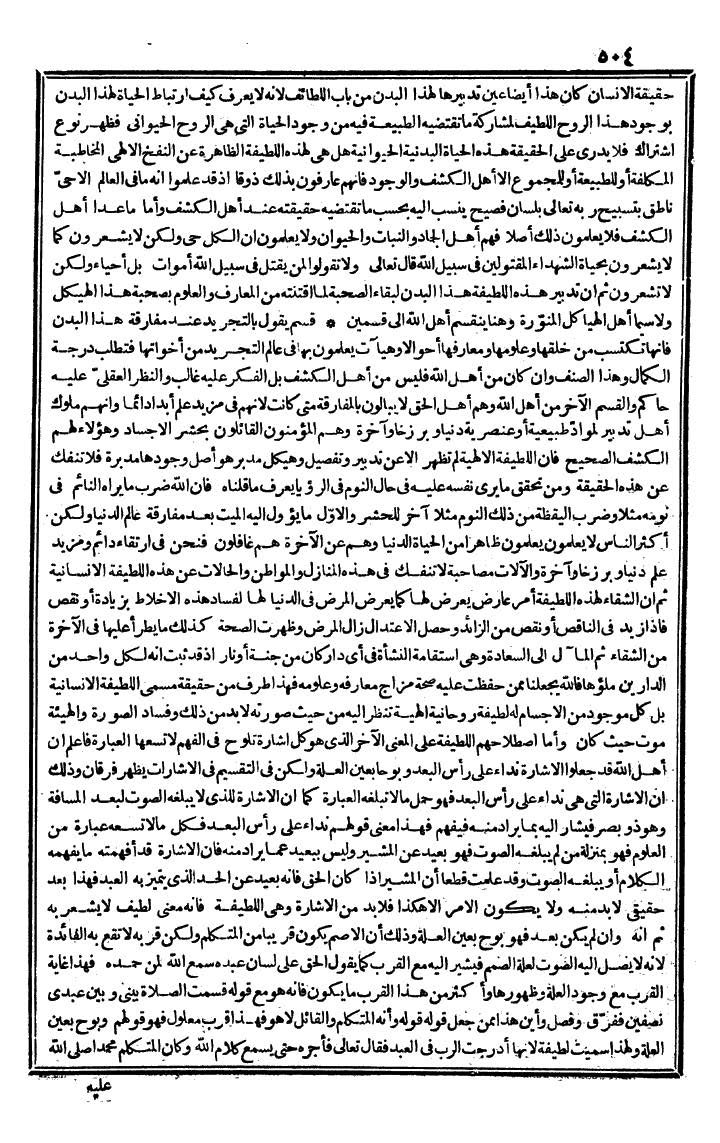 ٥٠٤
حقيقة الانسان كان هذا أيضا عين تدبيرها لهذا البدن من باب اللطائف لانه لا يعرف كيف ارتباط الحياة لهذا البدن
بوجود هذا الروح اللطيف لمشاركة ما تقتضيه الطبيعة فيه من وجود الحياة التى هى الروح الحيوانى فظهر نوع
اشتراك فلا يدرى على الحقيقة هذه الحياة البدنية الحيوانية هل هى لهذه اللطيفة الظاهرة عن النفخ الالهى المخاطبة
المكلفة أو للطبيعة أو للمجموع الا أهل الكشف والوجود فانهم عارفون بذلك ذوقا اذ قد علموا انه ما فى العالم الا حىّ
ناطق بتسبيح ربه تعالى بلسان فصيح ينسب اليه بحسب ما تقتضيه حقيقته عند أهل الكشف وأما ما عدا أهل
الكشف فلا يعلمون ذلك أصلا فهم أهل الجماد والنبات والحيوان ولا يعلمون ان الكل حى ولكن لا يشعرون كما
لا يشعرون بحياة الشهداء المقتولين فى سبيل الله قال تعالى ولا تقولوا لمن يقتل فى سبيل الله أموات بل أحياء ولكن
لا تشعرون ثم ان تدبير هذه اللطيفة هذا البدن لبقاء الصحبة لما اقتنته من المعارف والعلوم بصحبة هذا الهيكل
ولا سيما أهل الهياكل المنوّرة وهنا ينقسم أهل الله الى قسمين * قسم يقول بالتجريد عند مفارقة هذا البدن
فانها تكتسب من خلقها وعلومها ومعارفها أحوالا وهيآت يعلمون بها فى عالم التجريد من أخواتها فتطلب درجة
الكمال وهذا الصنف وان كان من أهل الله فليس من أهل الكشف بل الفكر عليه غالب والنظر العقلىّ عليه
حاكم والقسم الآخر من أهل الله وهم أهل الحق لا يبالون بالمفارقة متى كانت لانهم فى مزيد علم أبدا دائما وانهم ملوك
أهل تدبير لموادّ طبيعية أو عنصرية دنيا وبرزخا وآخرة وهم المؤمنون القائلون بحشر الاجساد وهؤلاء لهم
الكشف الصحيح فان اللطيفة الالهية لم تظهر الا عن تدبير وتفصيل وهيكل مدبر هو أصل وجودها مدبرة فلا تنفك
عن هذه الحقيقة ومن تحقق ما يرى نفسه عليه فى حال النوم فى الرؤيا يعرف ما قلناه فان الله ضرب ما يراه النائم فى
نومه مثلا وضرب اليقظة من ذلك النوم مثلا آخر للحشر والاوّل ما يؤول اليه الميت بعد مفارقة عالم الدنيا ولكن
أكثر الناس لا يعلمون يعلمون ظاهرا من الحياة الدنيا وهم عن الآخرة هم غافلون فنحن فى ارتقاء دائم ومزيد
علم دنيا وبرزخا وآخرة والآلات مصاحبة لا تنفك فى هذه المنازل والمواطن والحالات عن هذه اللطيفة الانسانية
ثم ان الشقاء لهذه اللطيفة أمر عارض يعرض لها كما يعرض المرض فى الدنيا لها لفساد هذه الاخلاط بزيادة أو نقص
فاذا زيد فى الناقص أو نقص من الزائد وحصل الاعتدال زال المرض وظهرت الصحة كذلك ما يطرأ عليها فى الآخرة
من الشقاء ثم المآل الى السعادة وهى استقامة النشأة فى أى دار كان من جنة أو نار اذ قد ثبت انه لكل واحد من
الدارين ملؤها فالله يجعلنا ممن حفظت عليه صحة مزاج معارفه وعلومه فهذا طرف من حقيقة مسمى اللطيفة الانسانية
بل كل موجود من الاجسام له لطيفة روحانية الهية تنظر اليه من حيث صورته لا بد من ذلك وفساد الصورة والهيئة
موت حيث كان وأما اصطلاحهم اللطيفة على المعنى الآخر الذى هو كل اشارة تلوح فى الفهم لا تسعها العبارة فاعلم ان
أهل الله قد جعلوا الاشارة نداء على رأس البعد وبوحا بعين العلة ولكن فى التقسيم فى الاشارات يظهر فرقان وذلك
ان الاشارة التى هى نداء على رأس البعد فهو حمل ما لا تبلغه العبارة كما ان الاشارة للذى لا يبلغه الصوت لبعد المسافة
وهو ذو بصر فيشار اليه بما يراد منه فيفهم فهذا معنى قولهم نداء على رأس البعد فكل ما لا تسعه عبارة من
العلوم فهو بمنزلة من لم يبلغه الصوت فهو بعيد عن المشير وليس ببعيد عما يراد منه فان الاشارة قد أفهمته ما يفهمه
الكلام أو يبلغه الصوت وقد علمت قطعا أن المشير اذا كان الحق فانه بعيد عن الحد الذى يتميز به العبد فهذا بعد
حقيقى لا بد منه ولا يكون الامر الا هكذا فلا بد من الاشارة وهى اللطيفة فانه معنى لطيف لا يشعر به
ثم انه وان لم يكن بعد فهو بوح بعين العلة وذلك أن الاصم يكون قريبا من المتكلم ولكن قربه لا تقع به الفائدة
لانه لا يصل اليه الصوت لعلة الصمم فيشير اليه مع القرب كما يقول الحق على لسان عبده سمع الله لمن حمده فهذا غاية
القرب مع وجود العلة وظهورها وأكثر من هذا القرب ما يكون فانه هو مع قوله قسمت الصلاة بينى وبين عبدى
نصفين ففرّق وفصل وأين هذا ممن جعل قوله قوله وأنه المتكلم والقائل لا هو فهذا قرب معلول فهو قولهم وبوح بعين
العلة ولهذا سميت لطيفة لانها أدرجت الرب فى العبد فقال تعالى فأجره حتى يسمع كلام الله وكان المتكلم محمدا صلى الله
عليه